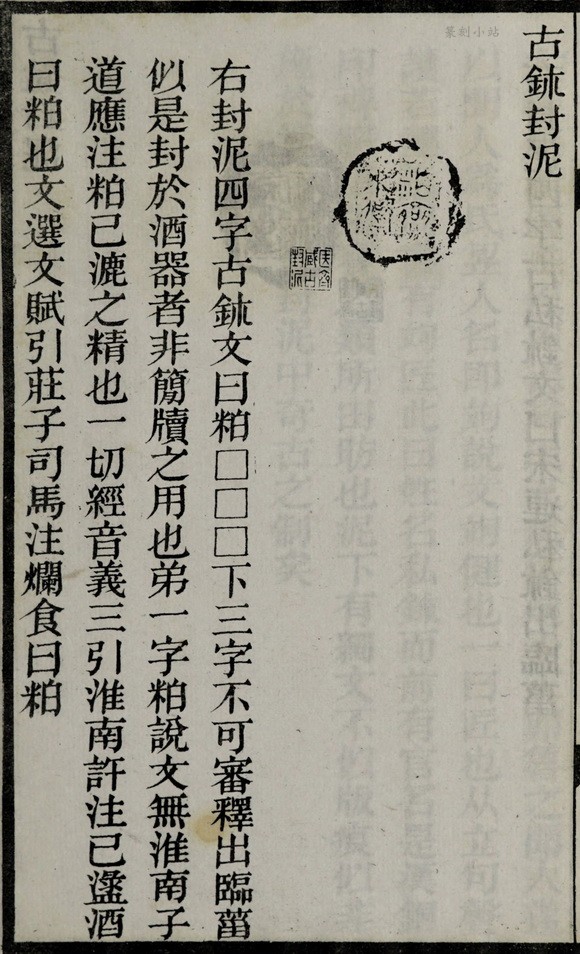 古鉥封泥
右封泥四字古鉥文曰粕□□□下三字不可審釋出臨菑
似是封於酒器者非簡牘之用也弟一字粕說文無淮南子
道應注粕已漉之精也一切經音義三引淮南許注已盪酒
曰粕也文選文賦引莊子司馬注爛食曰粕
篆刻小站